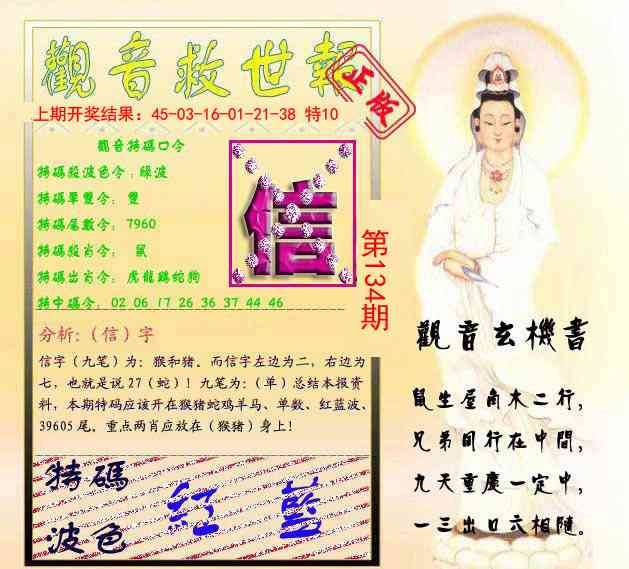 觀音救世報
正版
上期开奖结果：45-03-16-01-21-38 特10
觀音特碼口令
特碼殺波色令：綠波
特碼單雙令： 雙
特碼尾數令： 7960
特碼殺肖令： 鼠
特碼出肖令： 虎龍鷄蛇狗
特中碼令： 02 06 17 26 36 37 44 46
信
第134期
分析:（信）字
信字（九笔）为：猴和猪。而信字左边为二，右边为
七，也就是说 27（蛇）！九笔为：（单）总结本报资
料，本期特码应该开在猴猪蛇鸡羊马、单数、红蓝波、
39605 尾。重点两肖应放在（猴猪）身上！
特碼
波色
紅 藍
觀音玄機書
鼠生屋角木二行，
兄弟同行在中間，
九天重慶一定中，
一三出口六相隨。